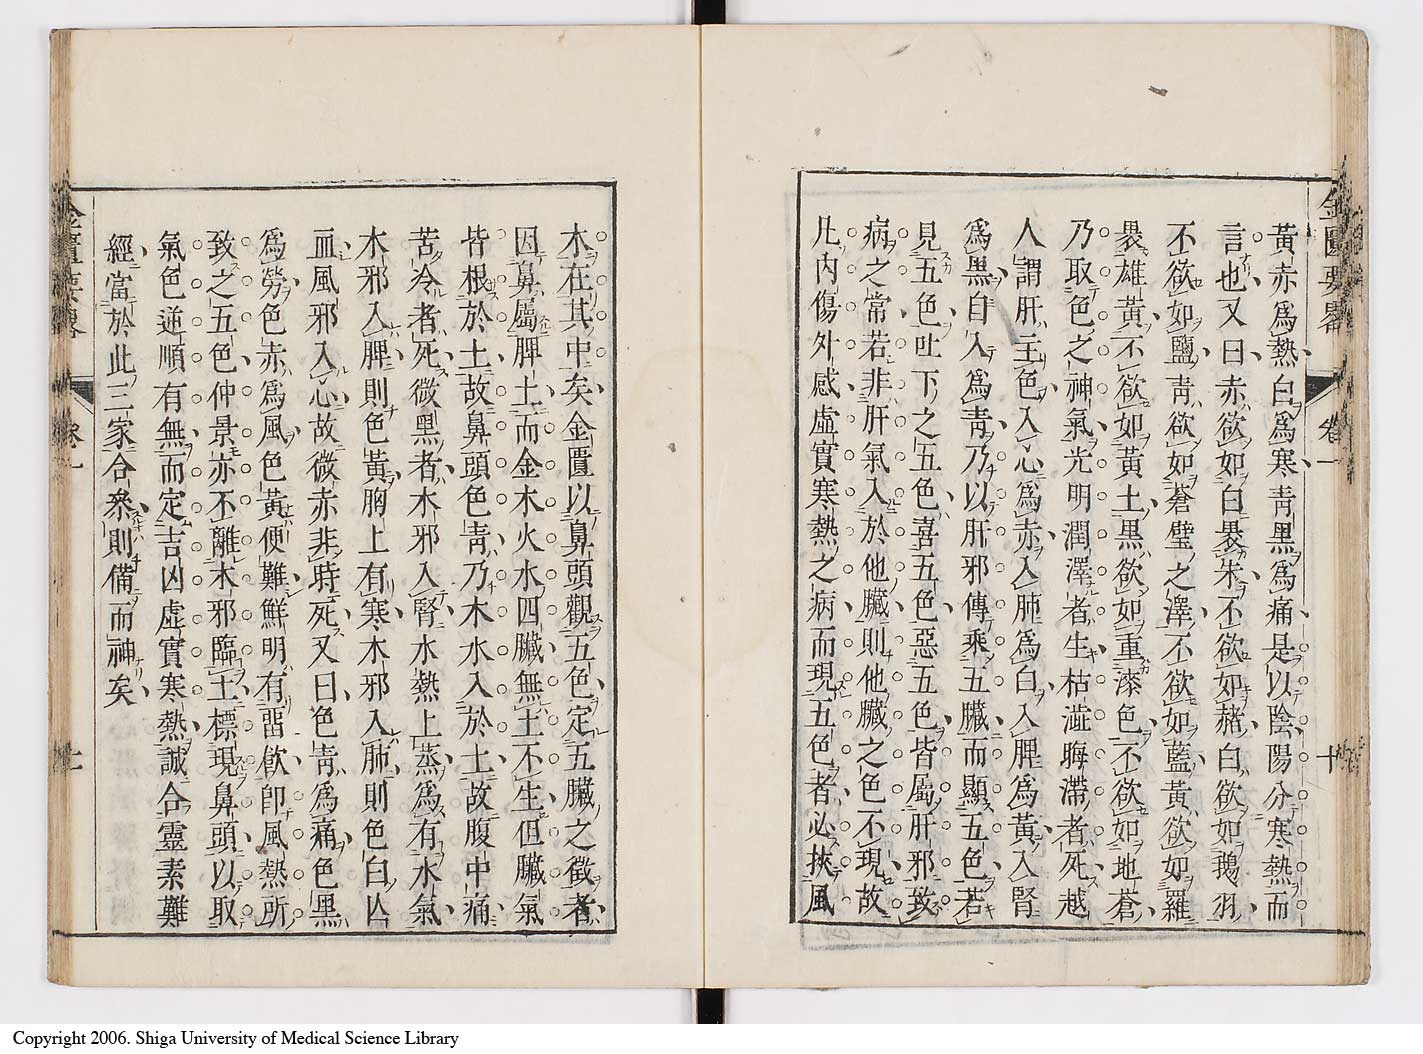 金匱要畧 卷一 十
黃赤爲熱白爲寒靑黑爲痛是以陰陽分寒熱而
言也又曰赤欲如白裹朱不欲如赭白欲如鵝羽
不欲如鹽靑欲如蒼璧之澤不欲如藍黃欲如羅
裹雄黃不欲如黃土黑欲如重漆色不欲如地蒼
乃取色之神氣光明潤澤者生枯澁晦滯者死越
人謂肝主色入心爲赤入肺爲白入脾爲黃入腎
爲黑自入爲靑乃以肝邪傳乘五臟而顯五色若
見五色吐下之五色喜五色惡五色皆屬肝邪致
病之常若非肝氣入於他臟則他臟之色不現故
凡內傷外感虛實寒熱之病而現五色者必挾風
木在其中矣金匱以鼻頭觀五色定五臟之徵者
因鼻屬脾土而金木火水四臟無土不生但臟氣
皆根於土故鼻頭色靑乃木水入於土故腹中痛
苦冷者死微黑者木邪入腎水熱上蒸爲有水氣
木邪入脾則色黃胸上有寒木邪入肺則色白亾
血風邪入心故微赤非時死又曰色靑爲痛色黑
爲勞色赤爲風色黃便難鮮明有畱飮卽風熱所
致之五色仲景亦不離木邪臨土標現鼻頭以取
氣色逆順有無而定吉凶虛實寒熱誠合靈素難
經當於此三家合參則備而神矣
金匱要畧 卷一
Copyright 2006. Shiga University of Medical Science Library